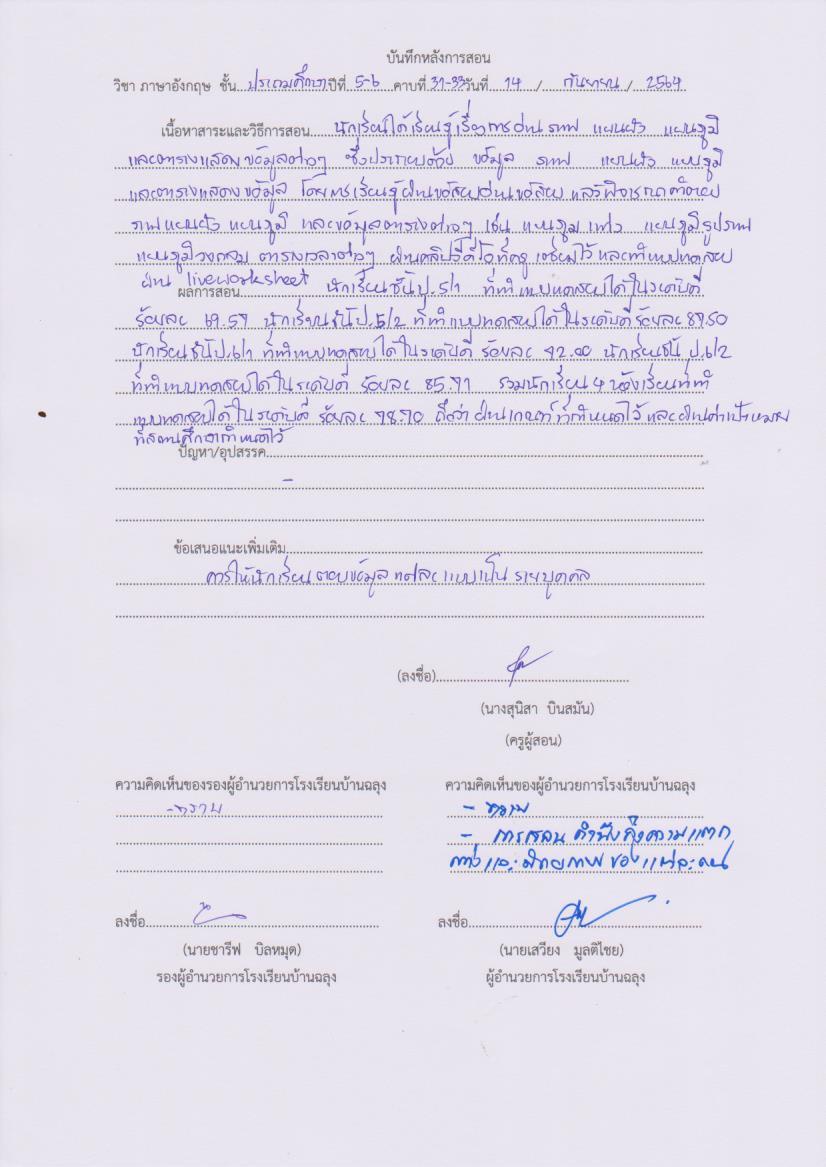 บันทึกหลังการสอน
วิชา ภาษาอังกฤษ ชั้น ประถมศึกษาปีที่ 5-6 คาบที่ 31-33 วันที่ 14 / กันยายน / 2564
เนื้อหาสาระและวิธีการสอน นักเรียนได้เรียนรู้เรื่องการอ่าน ภาพ แผนผัง แผนภูมิ
และตารางแสดงข้อมูลต่างๆ ซึ่งประกอบด้วย ข้อมูล ภาพ แผนผัง แผนภูมิ
และตารางแสดงข้อมูล โดยการเรียนรู้ผ่าน และพิจารณา
ภาพ แผนผัง แผนภูมิ และข้อมูลตารางต่างๆ เช่น แผนภูมิแท่ง แผนภูมิรูปภาพ
แผนภูมิวงกลม ตารางเวลาต่างๆ ผ่านคลิปวีดีโอที่ครูเตรียมไว้ และทำแบบทดสอบ
ผ่าน liveworksheet
ผลการสอน นักเรียนชั้นป.5/1 ที่ทำแบบทดสอบได้ในระดับดี
ร้อยละ 69.57 นักเรียนชั้นป.5/2 ที่ทำแบบทดสอบได้ในระดับดี ร้อยละ 89.50
นักเรียนชั้นป.6/1 ที่ทำแบบทดสอบได้ในระดับดี ร้อยละ 92.00 นักเรียนชั้น ป.6/2
ที่ทำแบบทดสอบได้ในระดับดี ร้อยละ 85.71 รวมนักเรียน 4 ห้องเรียนที่ทำ
แบบทดสอบได้ในระดับดี ร้อยละ 78.70 ถือว่า ผ่านเกณฑ์ที่กำหนดไว้ และผ่านค่าเป้าหมาย
ที่สถานศึกษากำหนดไว้
ปัญหา/อุปสรรค
-
ข้อเสนอแนะเพิ่มเติม
ควรให้นักเรียน ตอบข้อมูล แต่ละแบบเป็น รายบุคคล
(ลงชื่อ)
(นางสุนิสา บินสมัน)
(ครูผู้สอน)
ความคิดเห็นของรองผู้อำนวยการโรงเรียนบ้านฉลุง
-ทราบ
ลงชื่อ
(นายชารีฟ บิลหมุด)
รองผู้อำนวยการโรงเรียนบ้านฉลุง
ความคิดเห็นของผู้อำนวยการโรงเรียนบ้านฉลุง
- ทราบ
- การสอน คำนึงถึงความแตก
ต่างและศักยภาพของแต่ละคน
ลงชื่อ
(นายเสวียง มูลติไชย)
ผู้อำนวยการโรงเรียนบ้านฉลุง